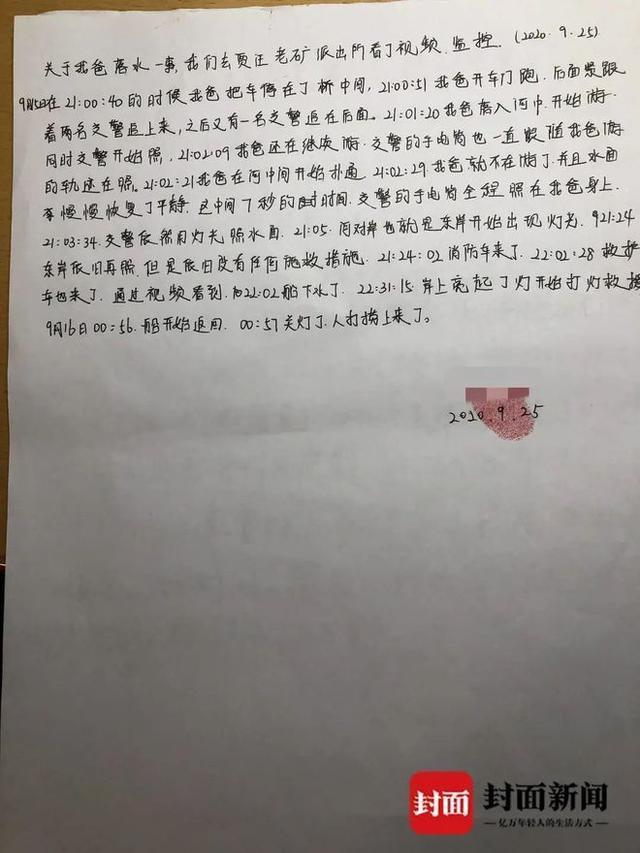 关于我爸落水一事,我们去贾汪老矿派出所看了视频监控.(2020.9.25)
9月15日在21:00:40的时候我爸把车停在了桥中间,21:00:51我爸开车门跑.后面紧跟
着两名交警追上来,之后又有一名交警追在后面.21:01:20我爸落入河中.开始游.
同时交警开始照.21:02:09我爸还在继续游.交警的手电筒也一直跟随我爸游
的轨迹在照.21:02:21我爸在河中间开始扑通.21:02:29.我爸就不在游了.并且水面
慢慢恢复了平静.这中间7秒的时间.交警的手电筒全程照在我爸身上.
21:03:34.交警依然用灯光照水面.21:05.河对岸也就是东岸开始出现灯光.21:24
东岸依旧再照.但是依旧没有任何施救措施.21:24:02消防车来了.22:02:28救护
车也来了.通过视频看到.22:02船下水了.22:31:15.岸上亮起了灯开始打灯救援
9月16日00:56.船开始返回.00:57关灯了.人打捞上来了。
2020.9.25
封面
封面新闻
亿万年轻人的生活方式